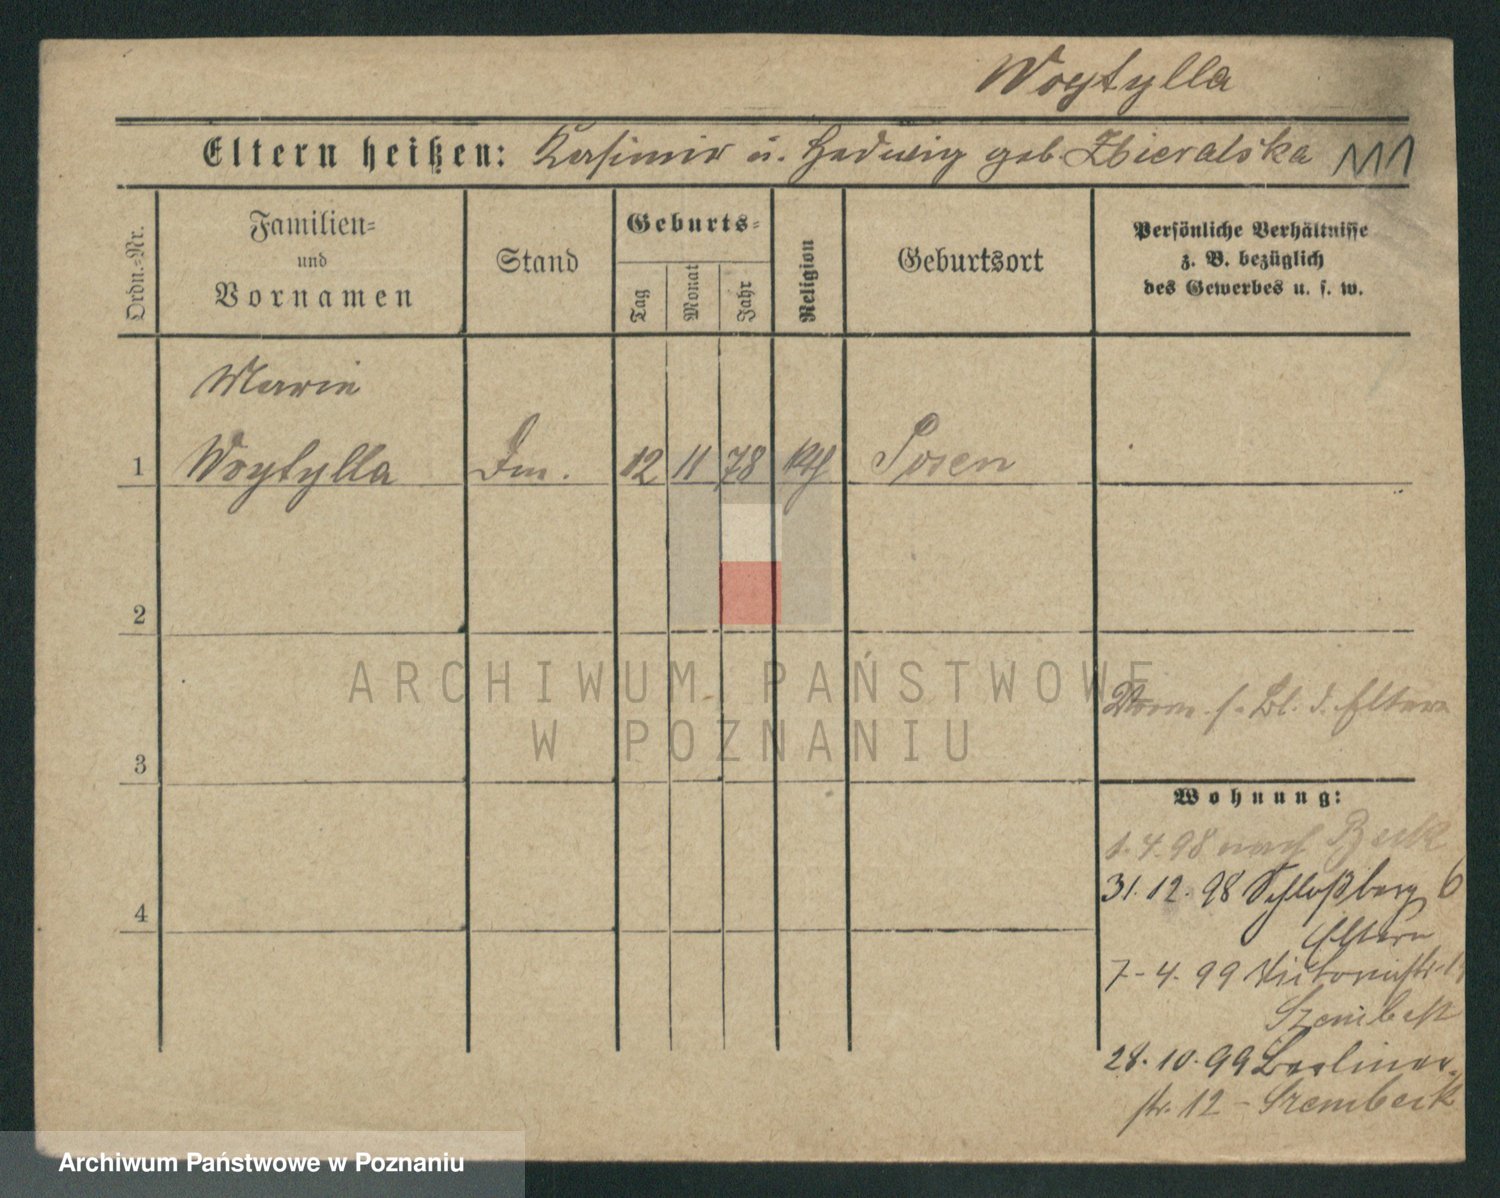 Woytylla
Eltern heißen: Kasimir u. Hedwig geb. Zbieralska
Ordn.-Nr.
Familien-
und
Vornamen
Stand
Geburts-
Tag
Monat
Jahr
Religion
Geburtsort
Persönliche Verhältnisse
z. B. bezüglich
des Gewerbes u. s. w.
Marie
1 Woytylla Dm. 12 11 78 kth Posen
2
ARCHIWUM PAŃSTWOWE
W POZNANIU
Vorm. s. Bl. d. Eltern
3
Wohnung:
1.4.98 nach
31.12.98 Schloßberg 6
4
Eltern
7-4.99 Victoriastr.
Szembek
28.10.99 Berliner-
str. 12 - Szembeck
Archiwum Państwowe w Poznaniu